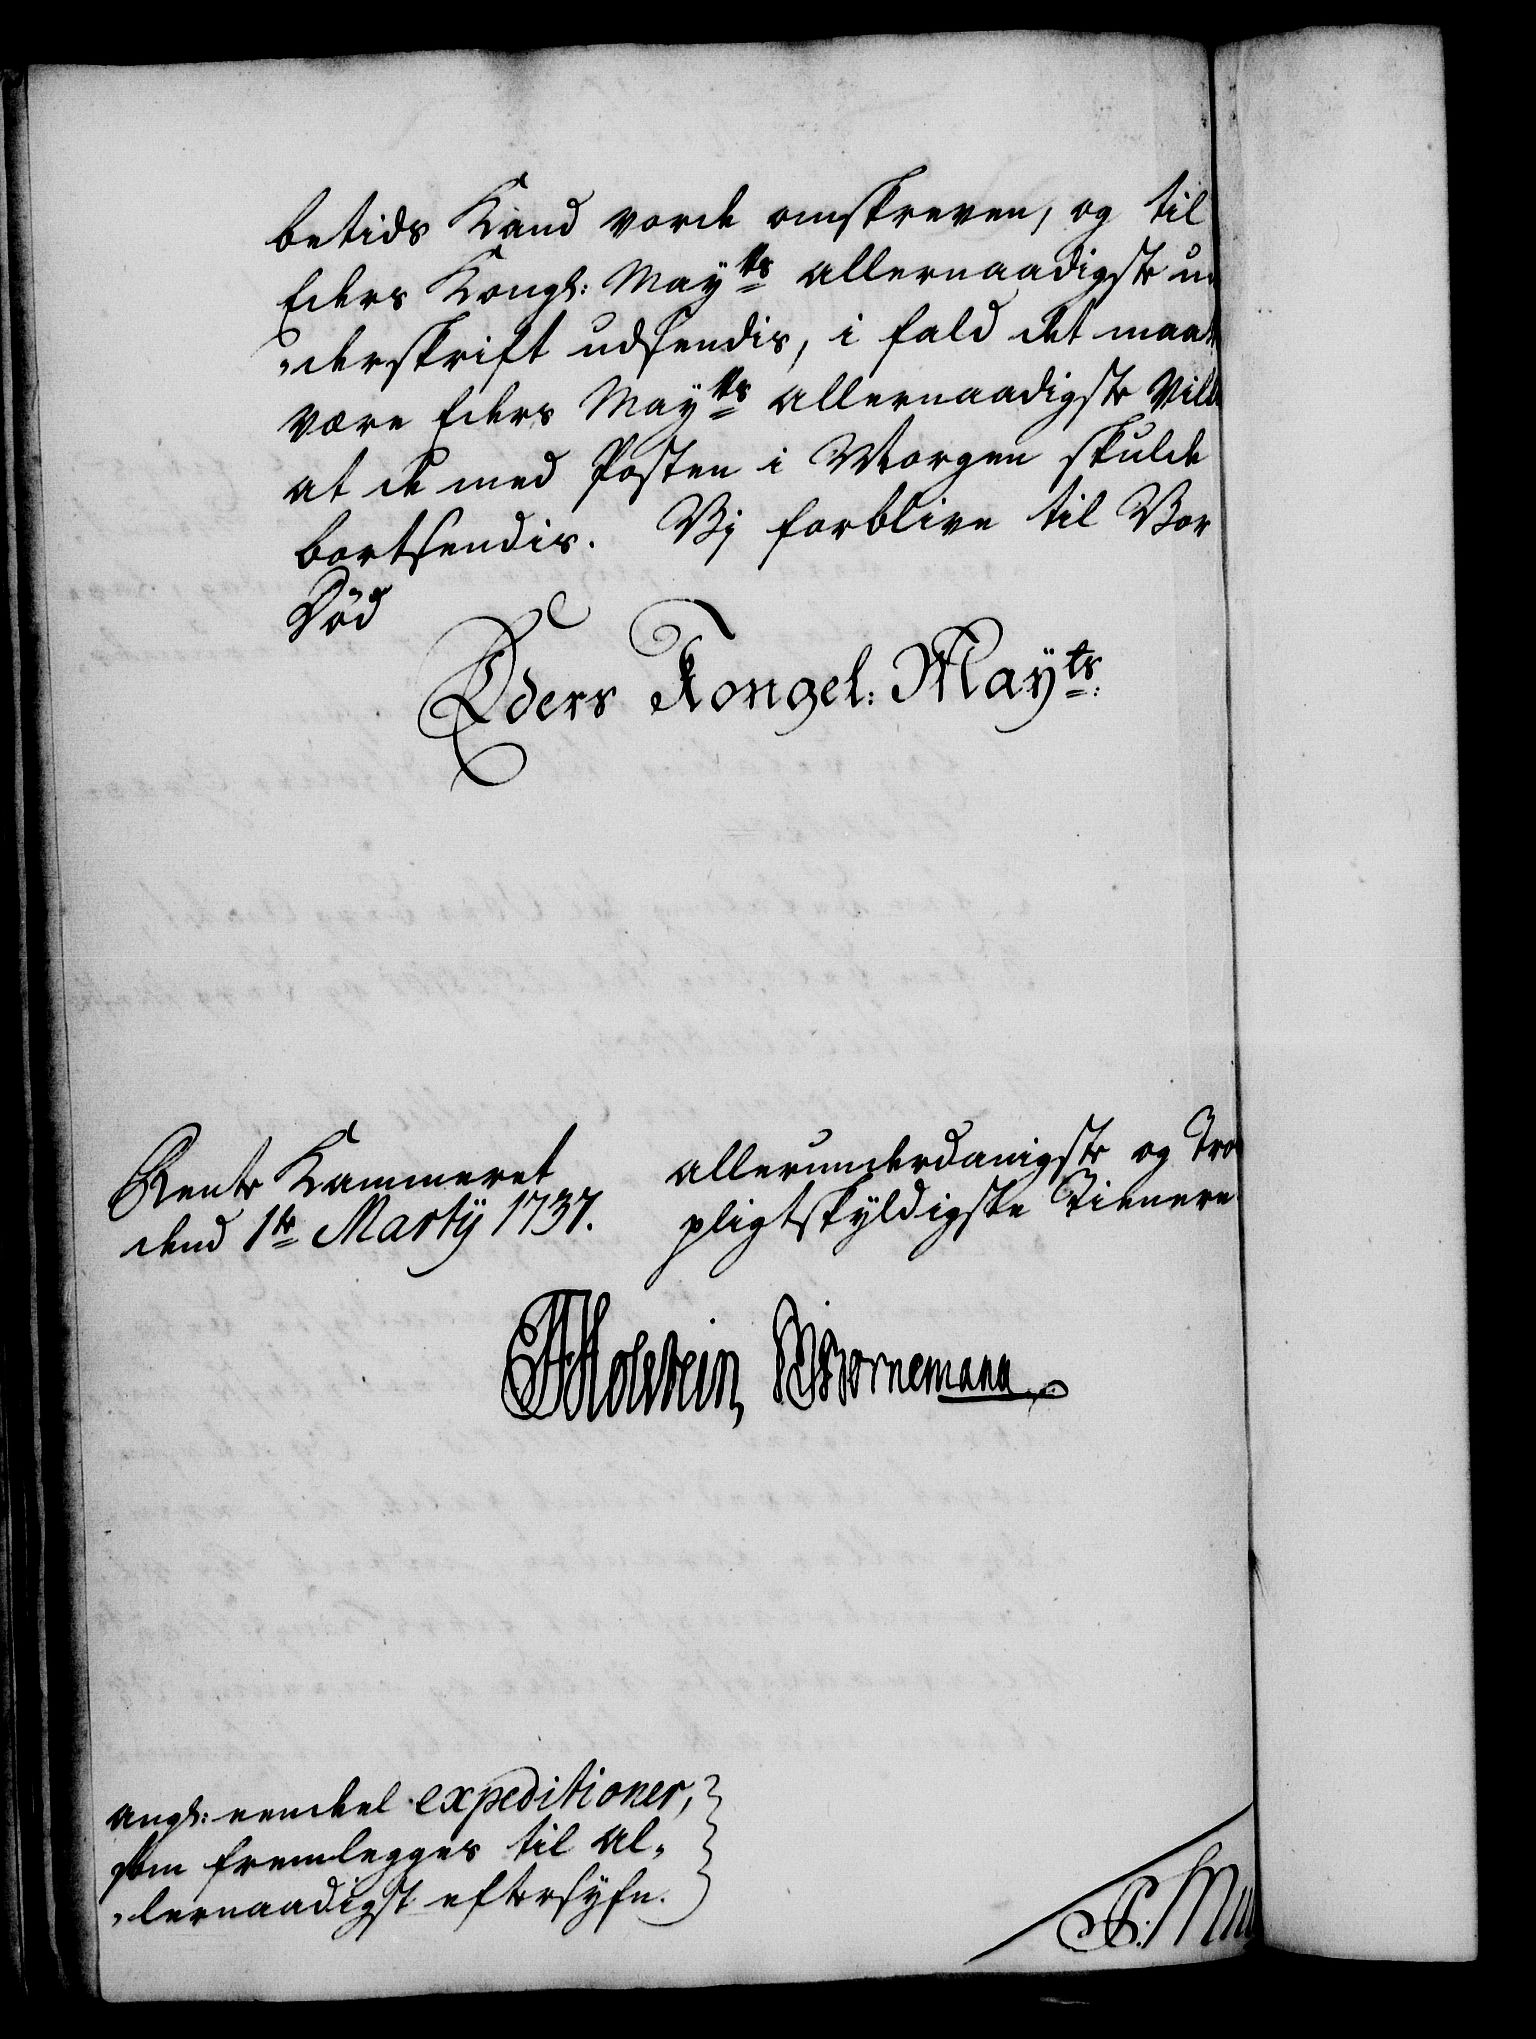 betids Kand vorde omskreven, og til
Eders Kongl: Mayts allernaadigste un
„derskrift udsendis, i fald det maat
være Eders Mayts allernaadigste Ville
at de med Posten i Morgen skulde
bortsendis. Vj forblive til Vor
Død
Eders Kongel: Mayts:
Rente Kammeret
dend 1te Martij 1737.
allerunderdanigste og Tro
pligtskyldigste Tienere
Holstein, Bornemann
angl: eendeel expeditioner,
som fremlegges til al„
„lernaadigst eftersyfn.